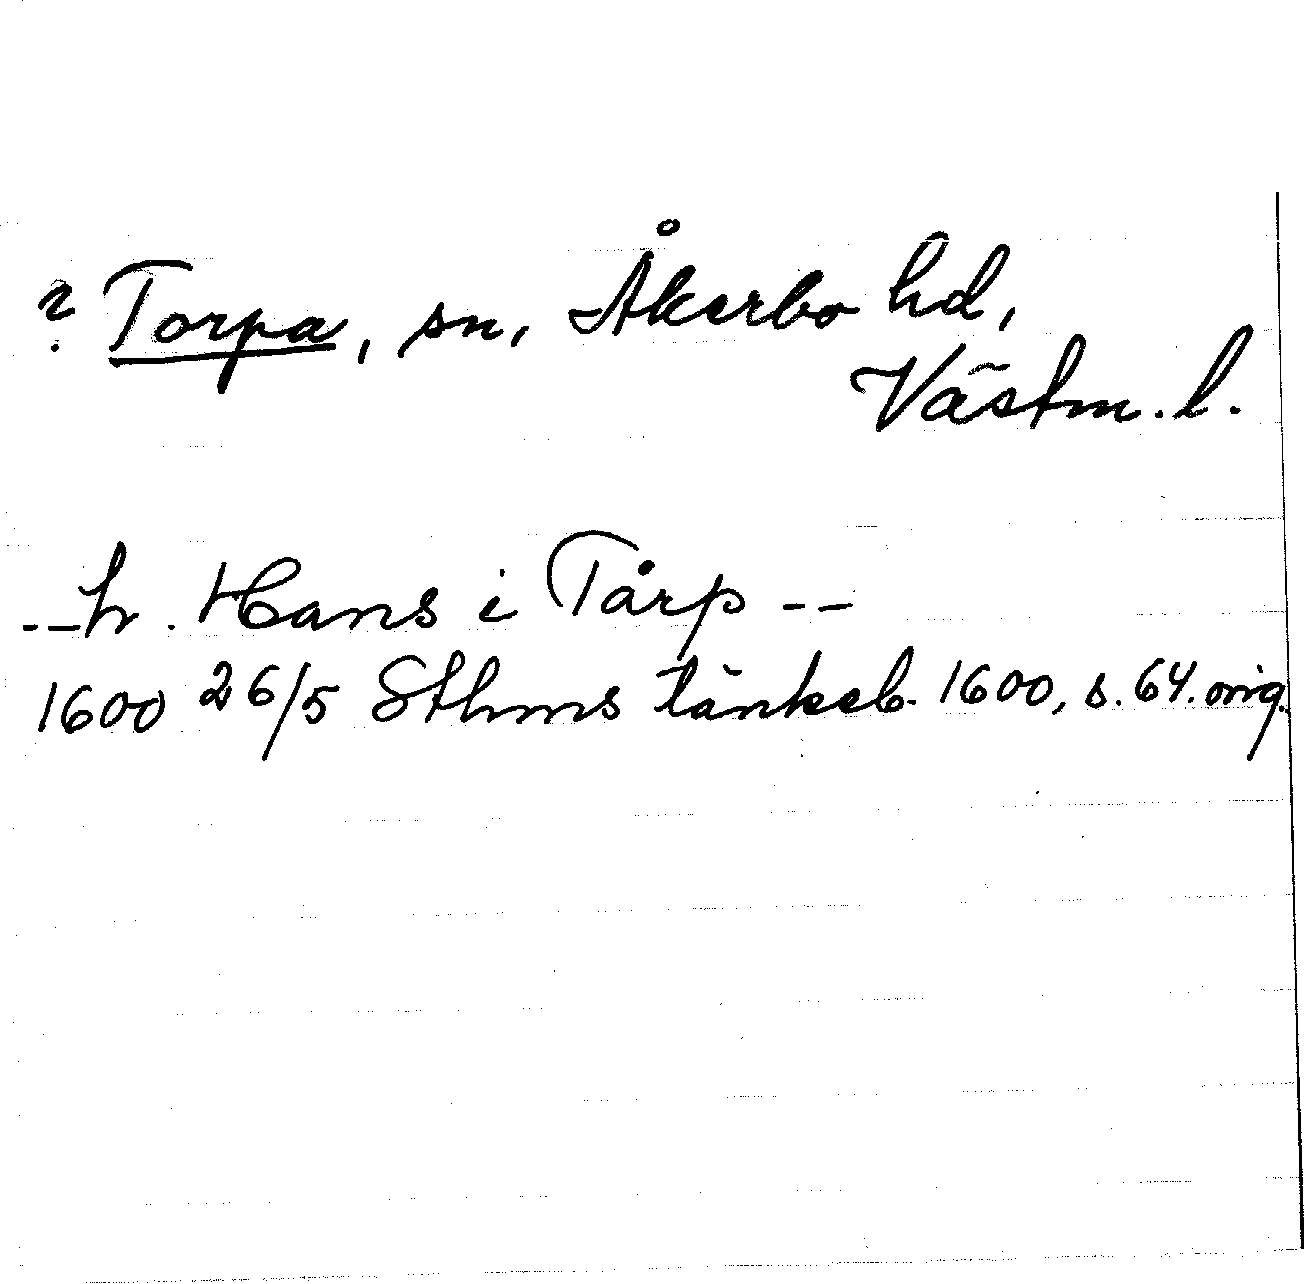 ? Torpa, sn, Åkerbo hd,
Västm. l.
-- h. Hans i Tårp --
1600 26/5 Sthms tänkeb. 1600, s. 64. orig.